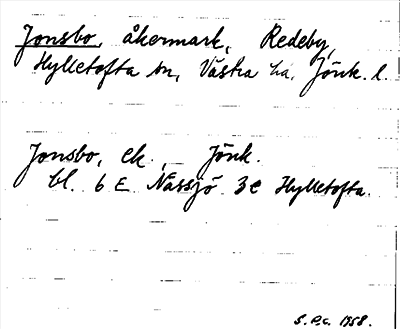 Jonsbo, åkermark, Redeby,
Hylletofta sn, Västra hd, Jönk. l.
Jonsbo, ek., Jönk.
bl. 6 E Nässjö 3e Hylletofta.
S.P.C. 1958.